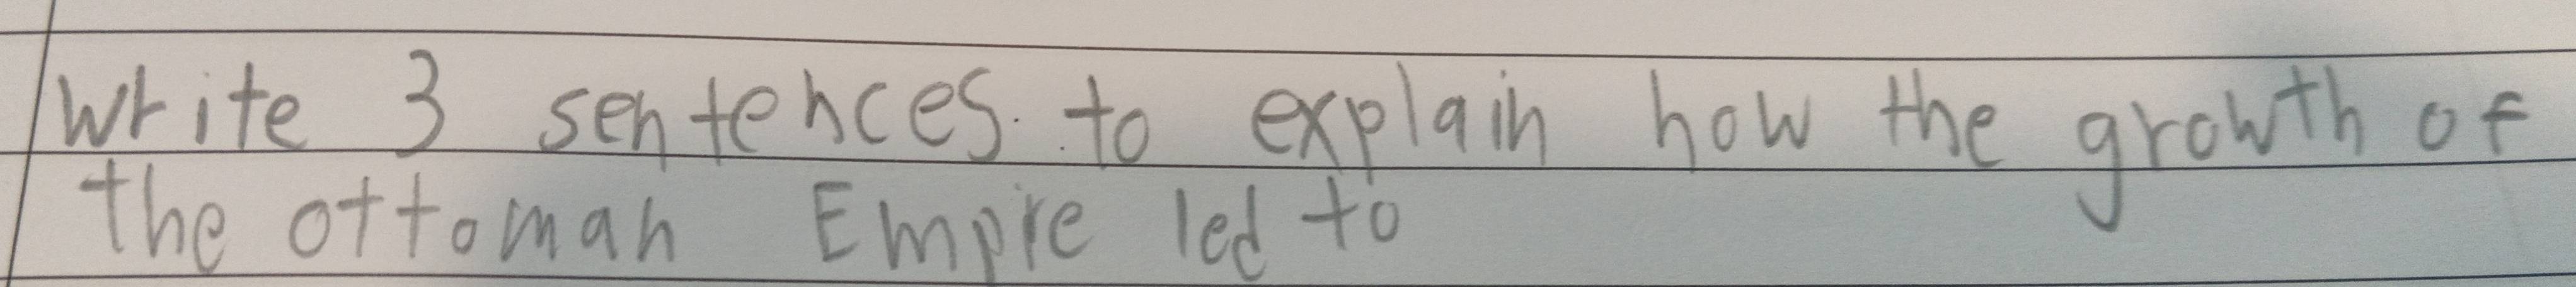 Write 3 sentences. to explain how the growth of
the ottoman Empire led to